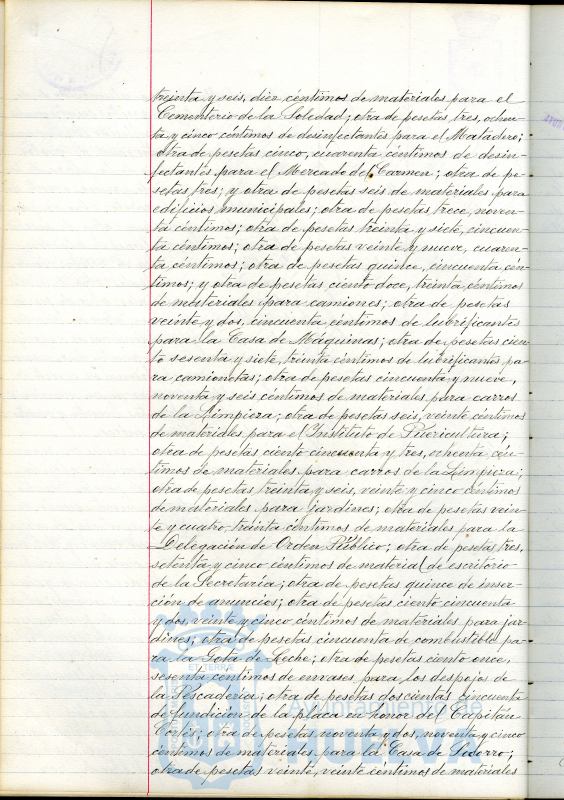 treinta y seis, diez céntimos de materiales para el
Cementerio de la Soledad; otra de pesetas tres, ochen-
ta y cinco céntimos de desinfectantes para el Matadero;
otra de pesetas cinco, cuarenta céntimos de desin-
fectantes para el Mercado del Carmen; otra de pe-
setas tres; y otra de pesetas seis de materiales para
edificios municipales; otra de pesetas trece, noven-
ta céntimos; otra de pesetas treinta y siete, cincuen-
ta céntimos; otra de pesetas veinte y nueve, cuaren-
ta céntimos; otra de pesetas quince, cincuenta cén-
timos; y otra de pesetas ciento doce, treinta céntimos
de materiales para camiones; otra de pesetas
veinte y dos, cincuenta céntimos de lubrificantes
para la Casa de Máquinas; otra de pesetas cien-
to sesenta y siete, treinta céntimos de lubrificantes pa-
ra camionetas; otra de pesetas cincuenta y nueve,
noventa y seis céntimos de materiales para carros
de la Limpieza; otra de pesetas seis, veinte céntimos
de materiales para el Instituto de Puericultura;
otra de pesetas ciento cincuenta y tres, ochenta cén-
timos de materiales para carros de la Limpieza;
otra de pesetas treinta y seis, veinte y cinco céntimos
de materiales para jardines; otra de pesetas vein-
te y cuatro, treinta céntimos de materiales para la
Delegación de Orden Público; otra de pesetas tres,
setenta y cinco céntimos de material de escritorio
de la Secretaria; otra de pesetas quince de inser-
ción de anuncios; otra de pesetas ciento cincuenta
y dos, veinte y cinco céntimos de materiales para jar-
dines; otra de pesetas cincuenta de combustible pa-
ra la Gota de Leche; otra de pesetas ciento once,
sesenta céntimos de envases para los despojos de
la Pescaderia; otra de pesetas doscientas cincuenta
de fundición de la placa en honor del Capitán
Cortés; otra de pesetas noventa y dos, noventa y cinco
céntimos de materiales para la Casa de Socorro;
otra de pesetas veinte, veinte céntimos de materiales
Ayuntamiento de
HUELVA